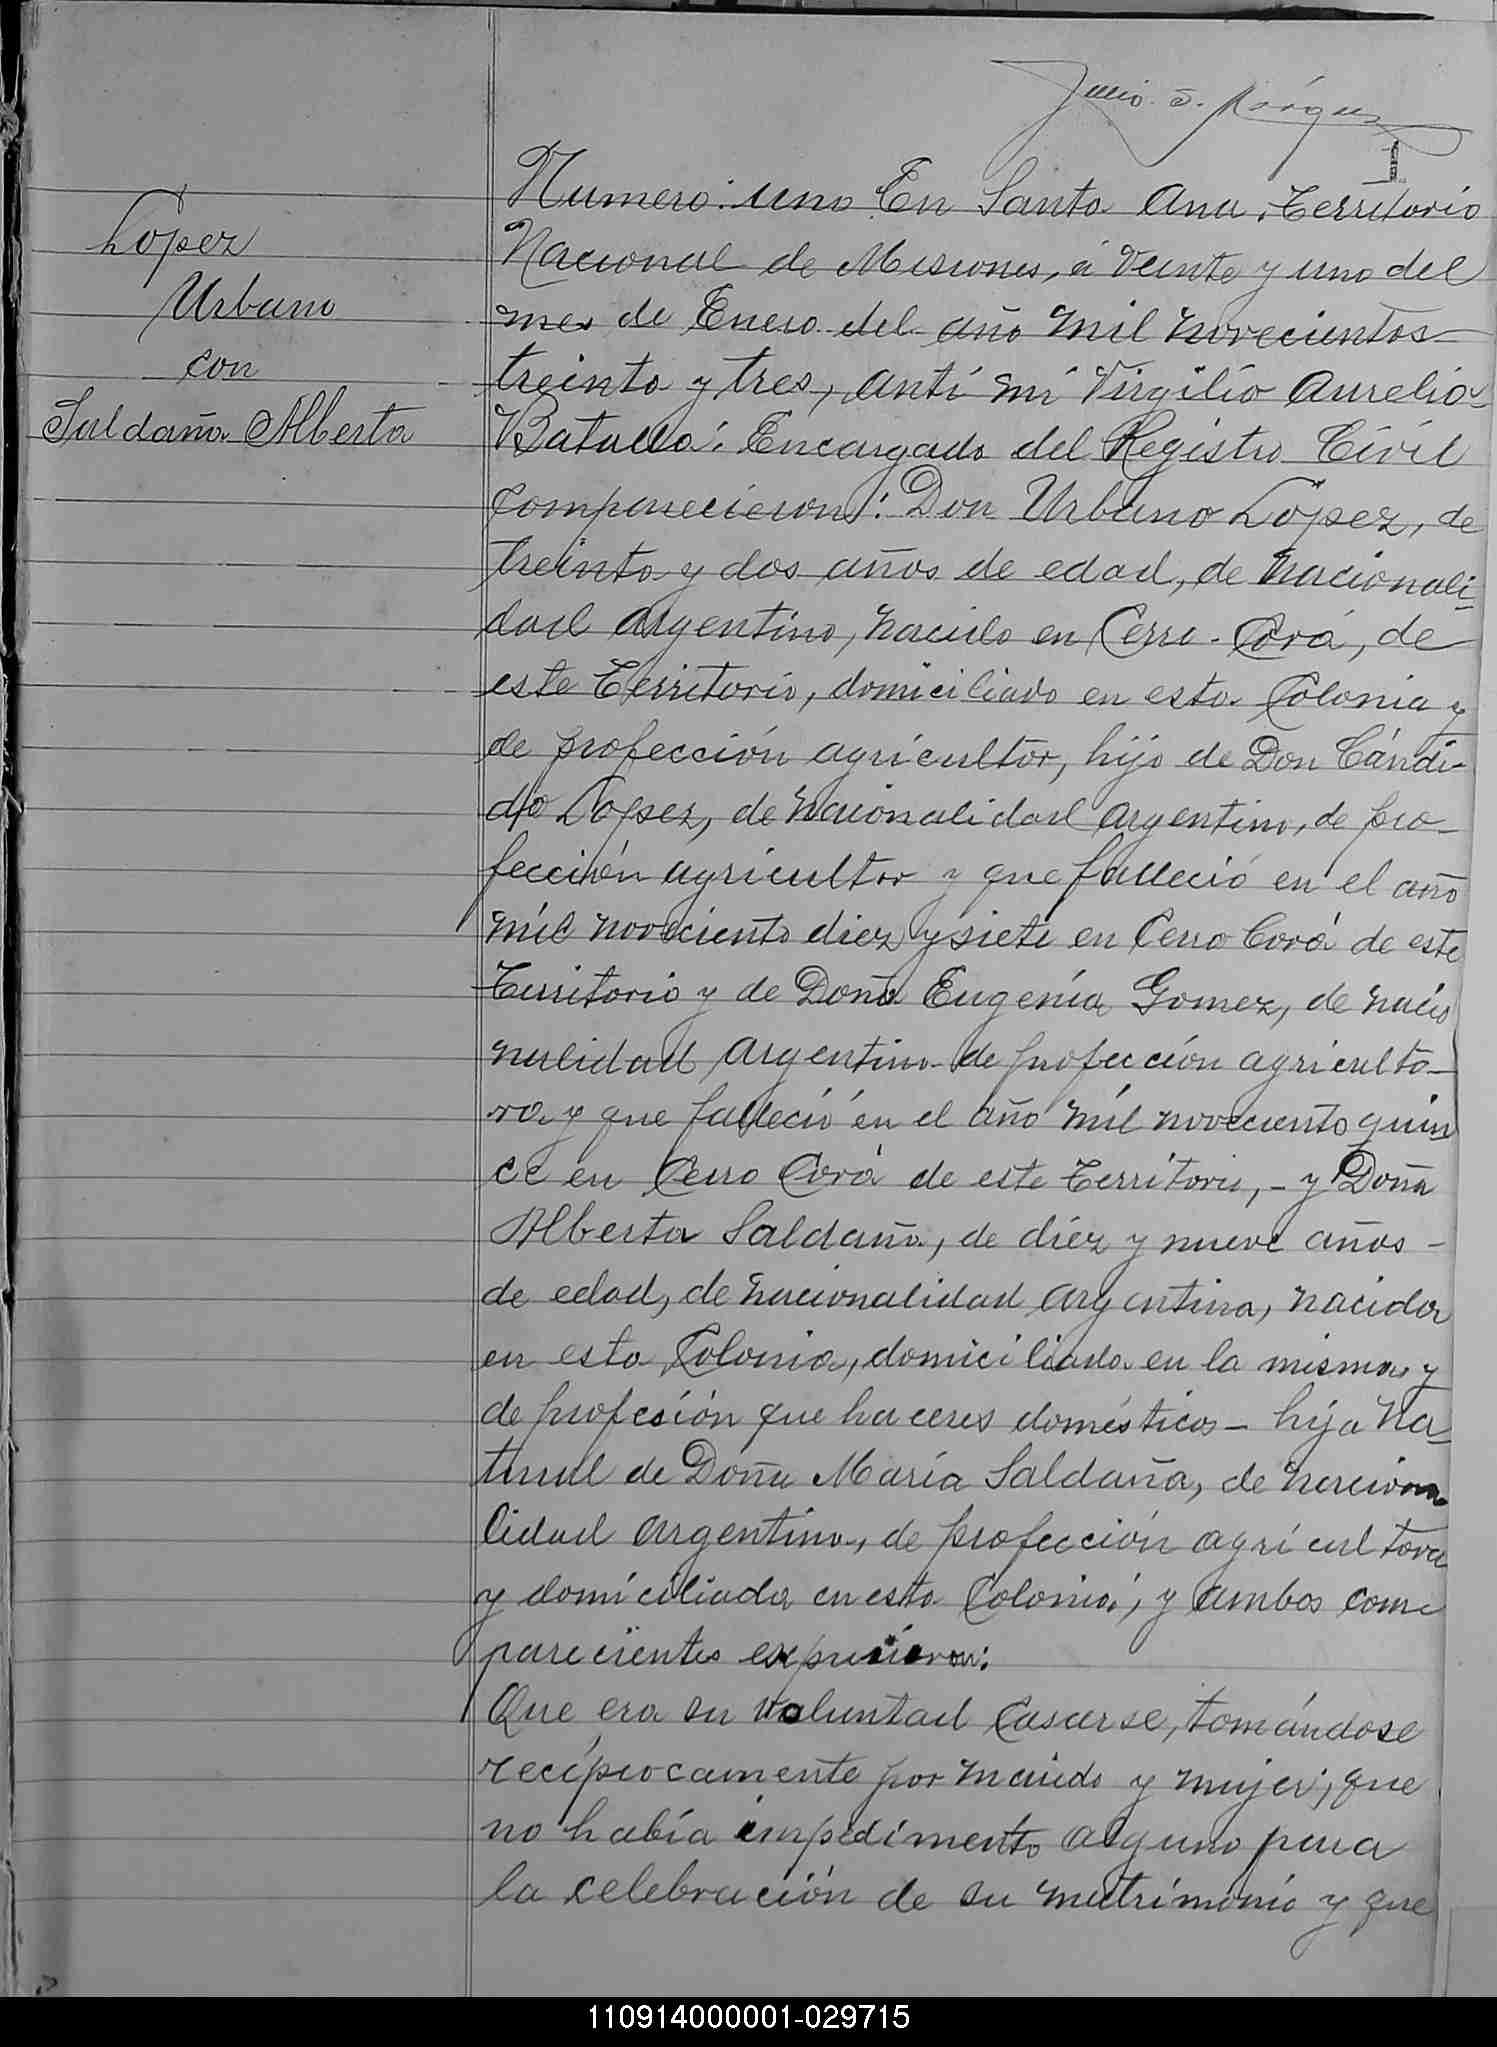 Julio S. Márquez
1
Lopez
Urbano
con
Saldaña Alberta
Numero: uno En Santa Ana, Territorio
Nacional de Misiones, á Veinte y uno del
mes de Enero del año mil novecientos
treinta y tres, anti mi Virgilio Aurelio
Encargado del Registro Civil
comparecieron: Don Urbano Lopez, de
treinta y dos años de edad, de nacionali-
dad argentino, nacido en Cerro-Corá, de
este Territorio, domiciliado en esta Colonia y
de profección agricultor, hijo de Don Cándi-
do Lopez, de nacionalidad argentino, de pro-
fección agricultor y que falleció en el año
mil noveciento diez y siete en Cerro Corá de este
Territorio y de Doña Eugenia Gomez, de nacio
nalidad argentina de profección agriculto-
ra y que falleció en el año mil noveciento quin
ce en Cerro Corá de este Territorio,- y Doña
Alberta Saldaña, de diez y nueve años -
de edad, de nacionalidad argentina, nacida
en esta Colonia, domiciliada en la misma y
de profesión que haceres domésticos- hija na-
tural de Doña María Saldaña, de naciona
lidad argentina, de profección agricultora
y domiciliada en esta Colonia; y ambos com
parecientes expusieron:
Que era su voluntad casarse, tomándose
recíprocamente por marido y mujer; que
no había impedimento alguno para
la celebración de su matrimonio y que
110914000001-029715